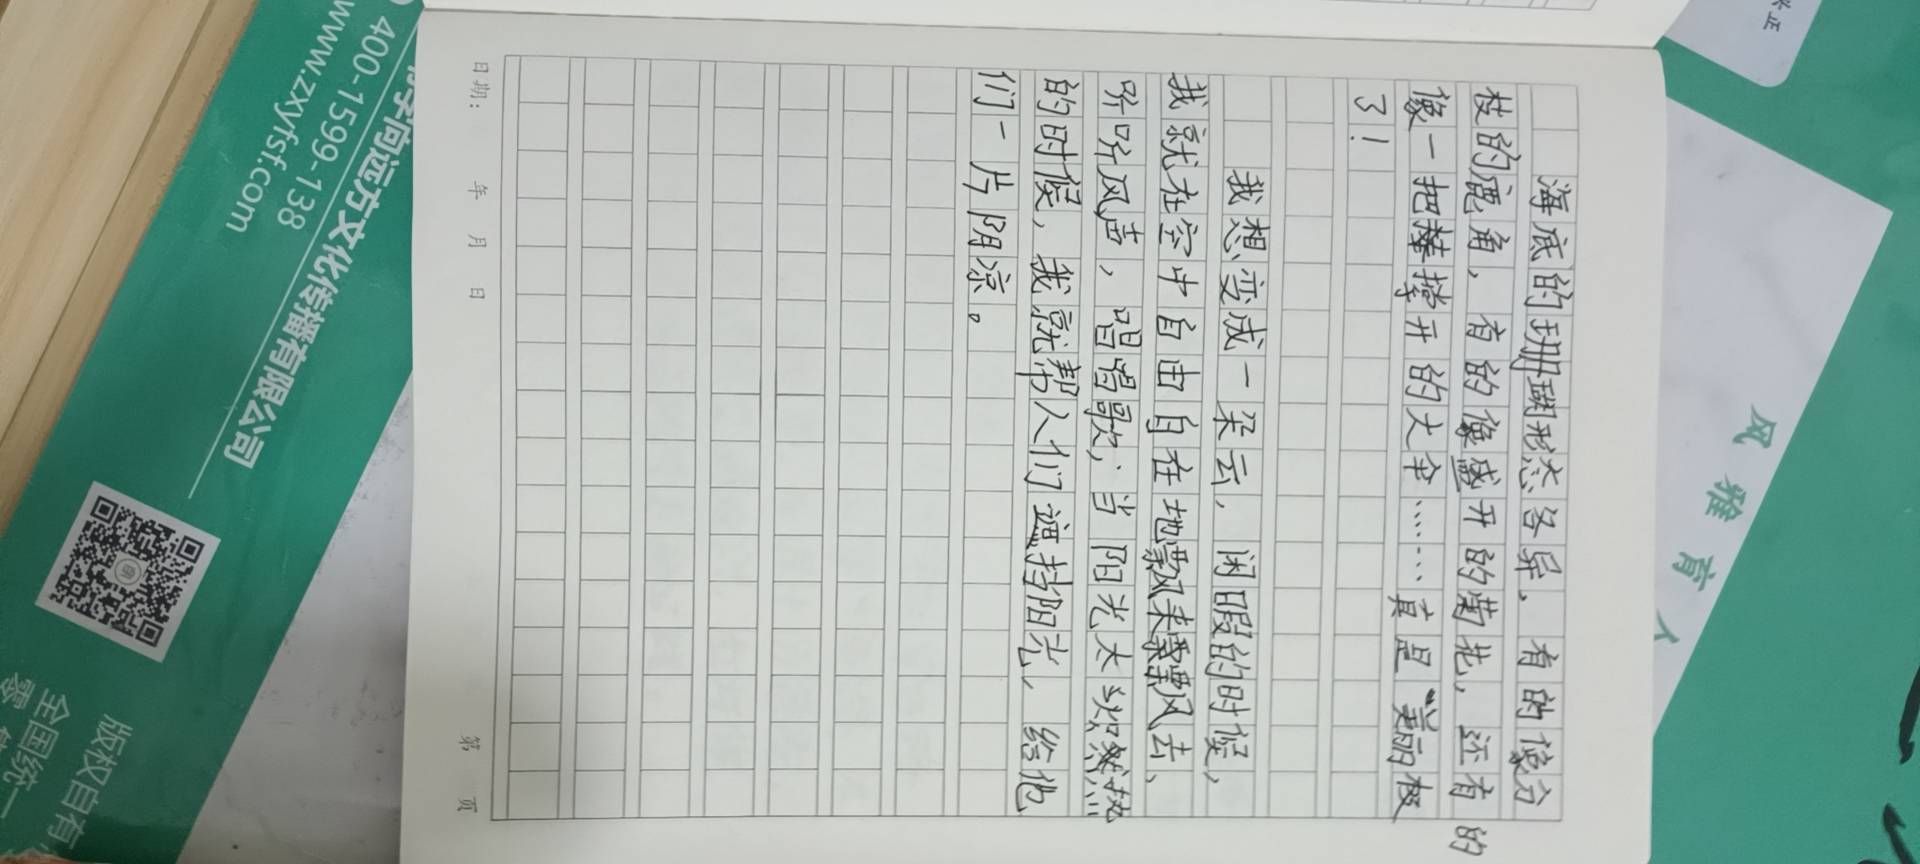 海底的珊瑚形态各异。有的像分
枝的鹿角，有的像盛开的菊花，还有的
像一把撑开的大伞……真是美丽极
了！
我想变成一朵云，闲暇的时候，
我就在空中自由自在地飘来飘去、
听听风声，唱唱歌；当阳光太炽热
的时候，我就帮人们遮挡阳光，给他
们一片阴凉。
日期： 年 月 日 第 页
学向远方文化传播有限公司
400-1599-138
www.zxyfsf.com
版权自有
全国统一
风雅育人